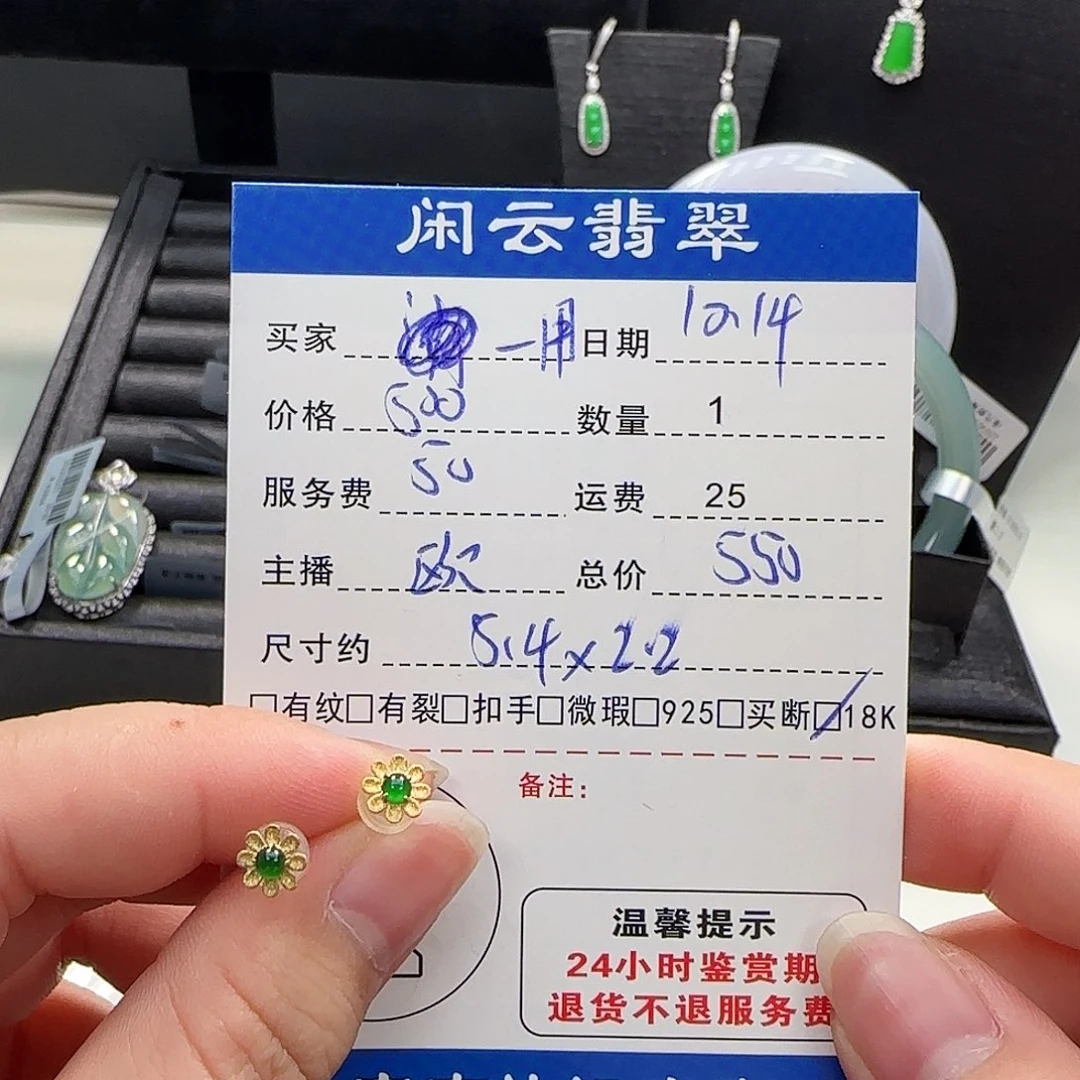 闲云翡翠
买家 一用 日期 12.14
价格 500 数量 1
服务费 50 运费 25
主播 欧 总价 550
尺寸约 5.4×2.2
□有纹□有裂□扣手□微瑕□925□买断□18K
备注:
温馨提示
24小时鉴赏期
退货不退服务费